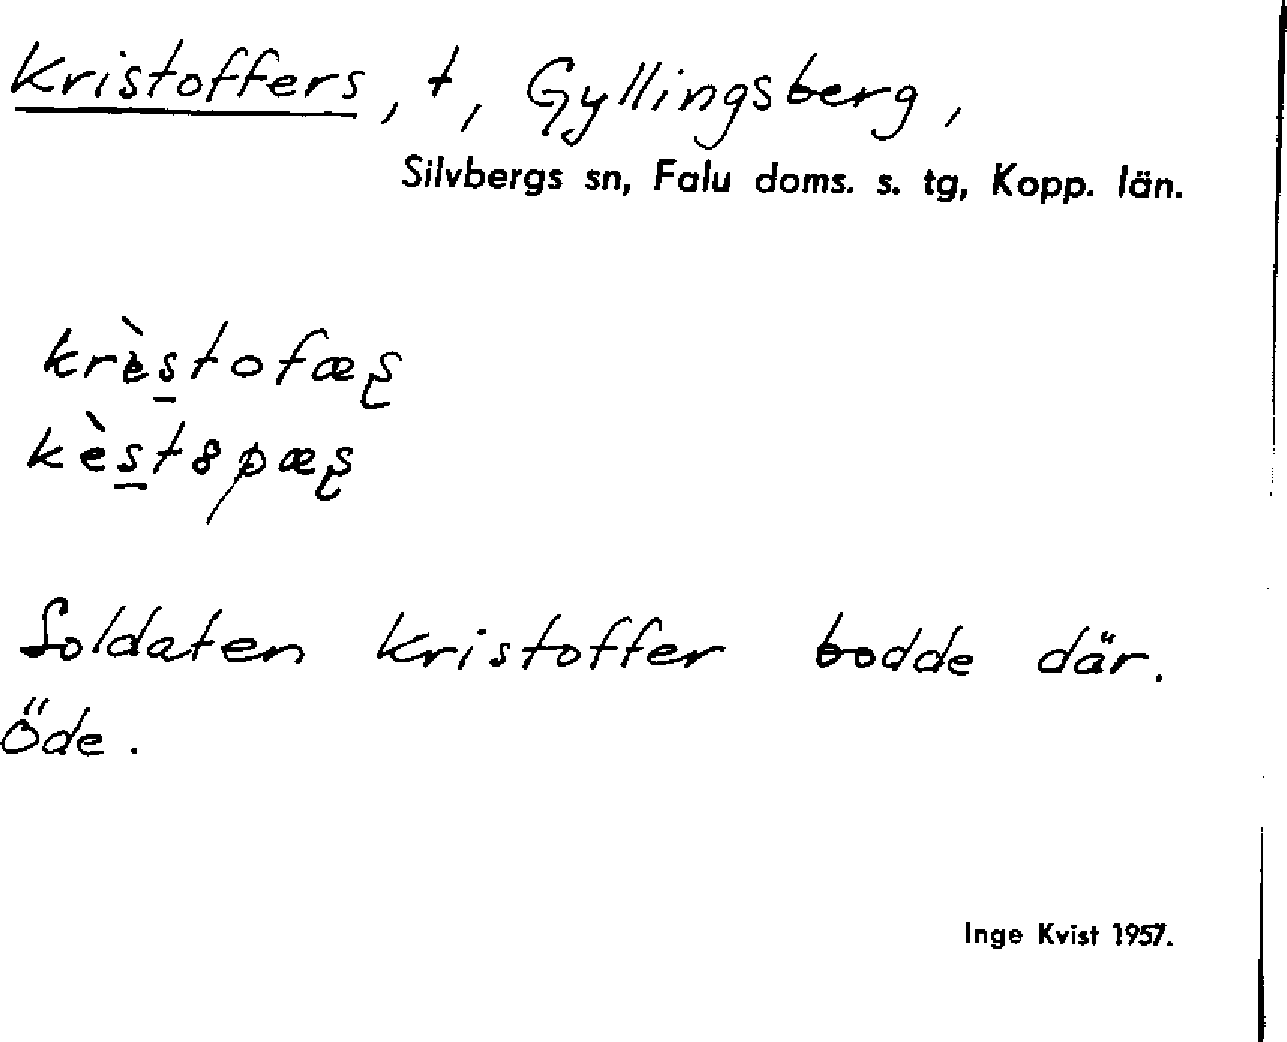 Kristoffers, t, Gyllingsberg,
Silvbergs sn, Falu doms. s. tg, Kopp. län.
krèstofæʂ
kèst8pæʂ
Soldaten Kristoffer bodde där.
Öde.
Inge Kvist 1957.